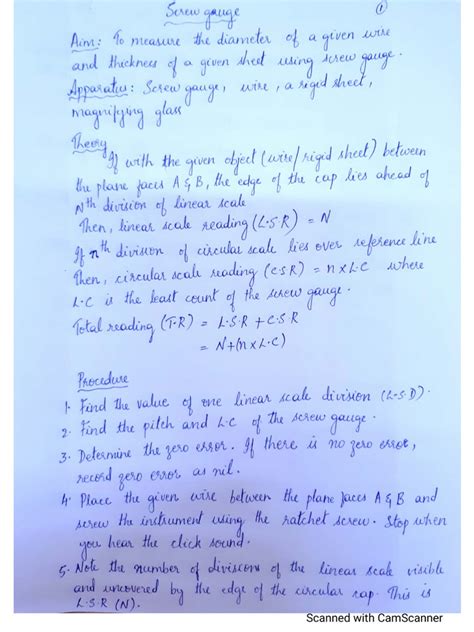 Screw gauge
①
Aim: To measure the diameter of a given wire
and thickness of a given sheet using screw gauge.
Apparatus: Screw gauge, wire, a rigid sheet,
magnifying glass
Theory
If with the given object (wire/rigid sheet) between
the plane faces A & B, the edge of the cap lies ahead of
Nth division of linear scale
Then, linear scale reading (L.S.R) = N
If nth division of circular scale lies over reference line
Then, circular scale reading (C.S.R) = n x L.C where
L.C is the least count of the screw gauge.
Total reading (T.R) = L.S.R + C.S.R
= N+(n x L.C)
Procedure
1. Find the value of one linear scale division (L.S.D).
2. Find the pitch and L.C of the screw gauge.
3. Determine the zero error. If there is no zero error,
record zero error as nil.
4. Place the given wire between the plane faces A & B and
screw the instrument using the ratchet screw. Stop when
you hear the click sound.
5. Note the number of divisions of the linear scale visible
and uncovered by the edge of the circular cap. This is
L.S.R (N).
Scanned with CamScanner